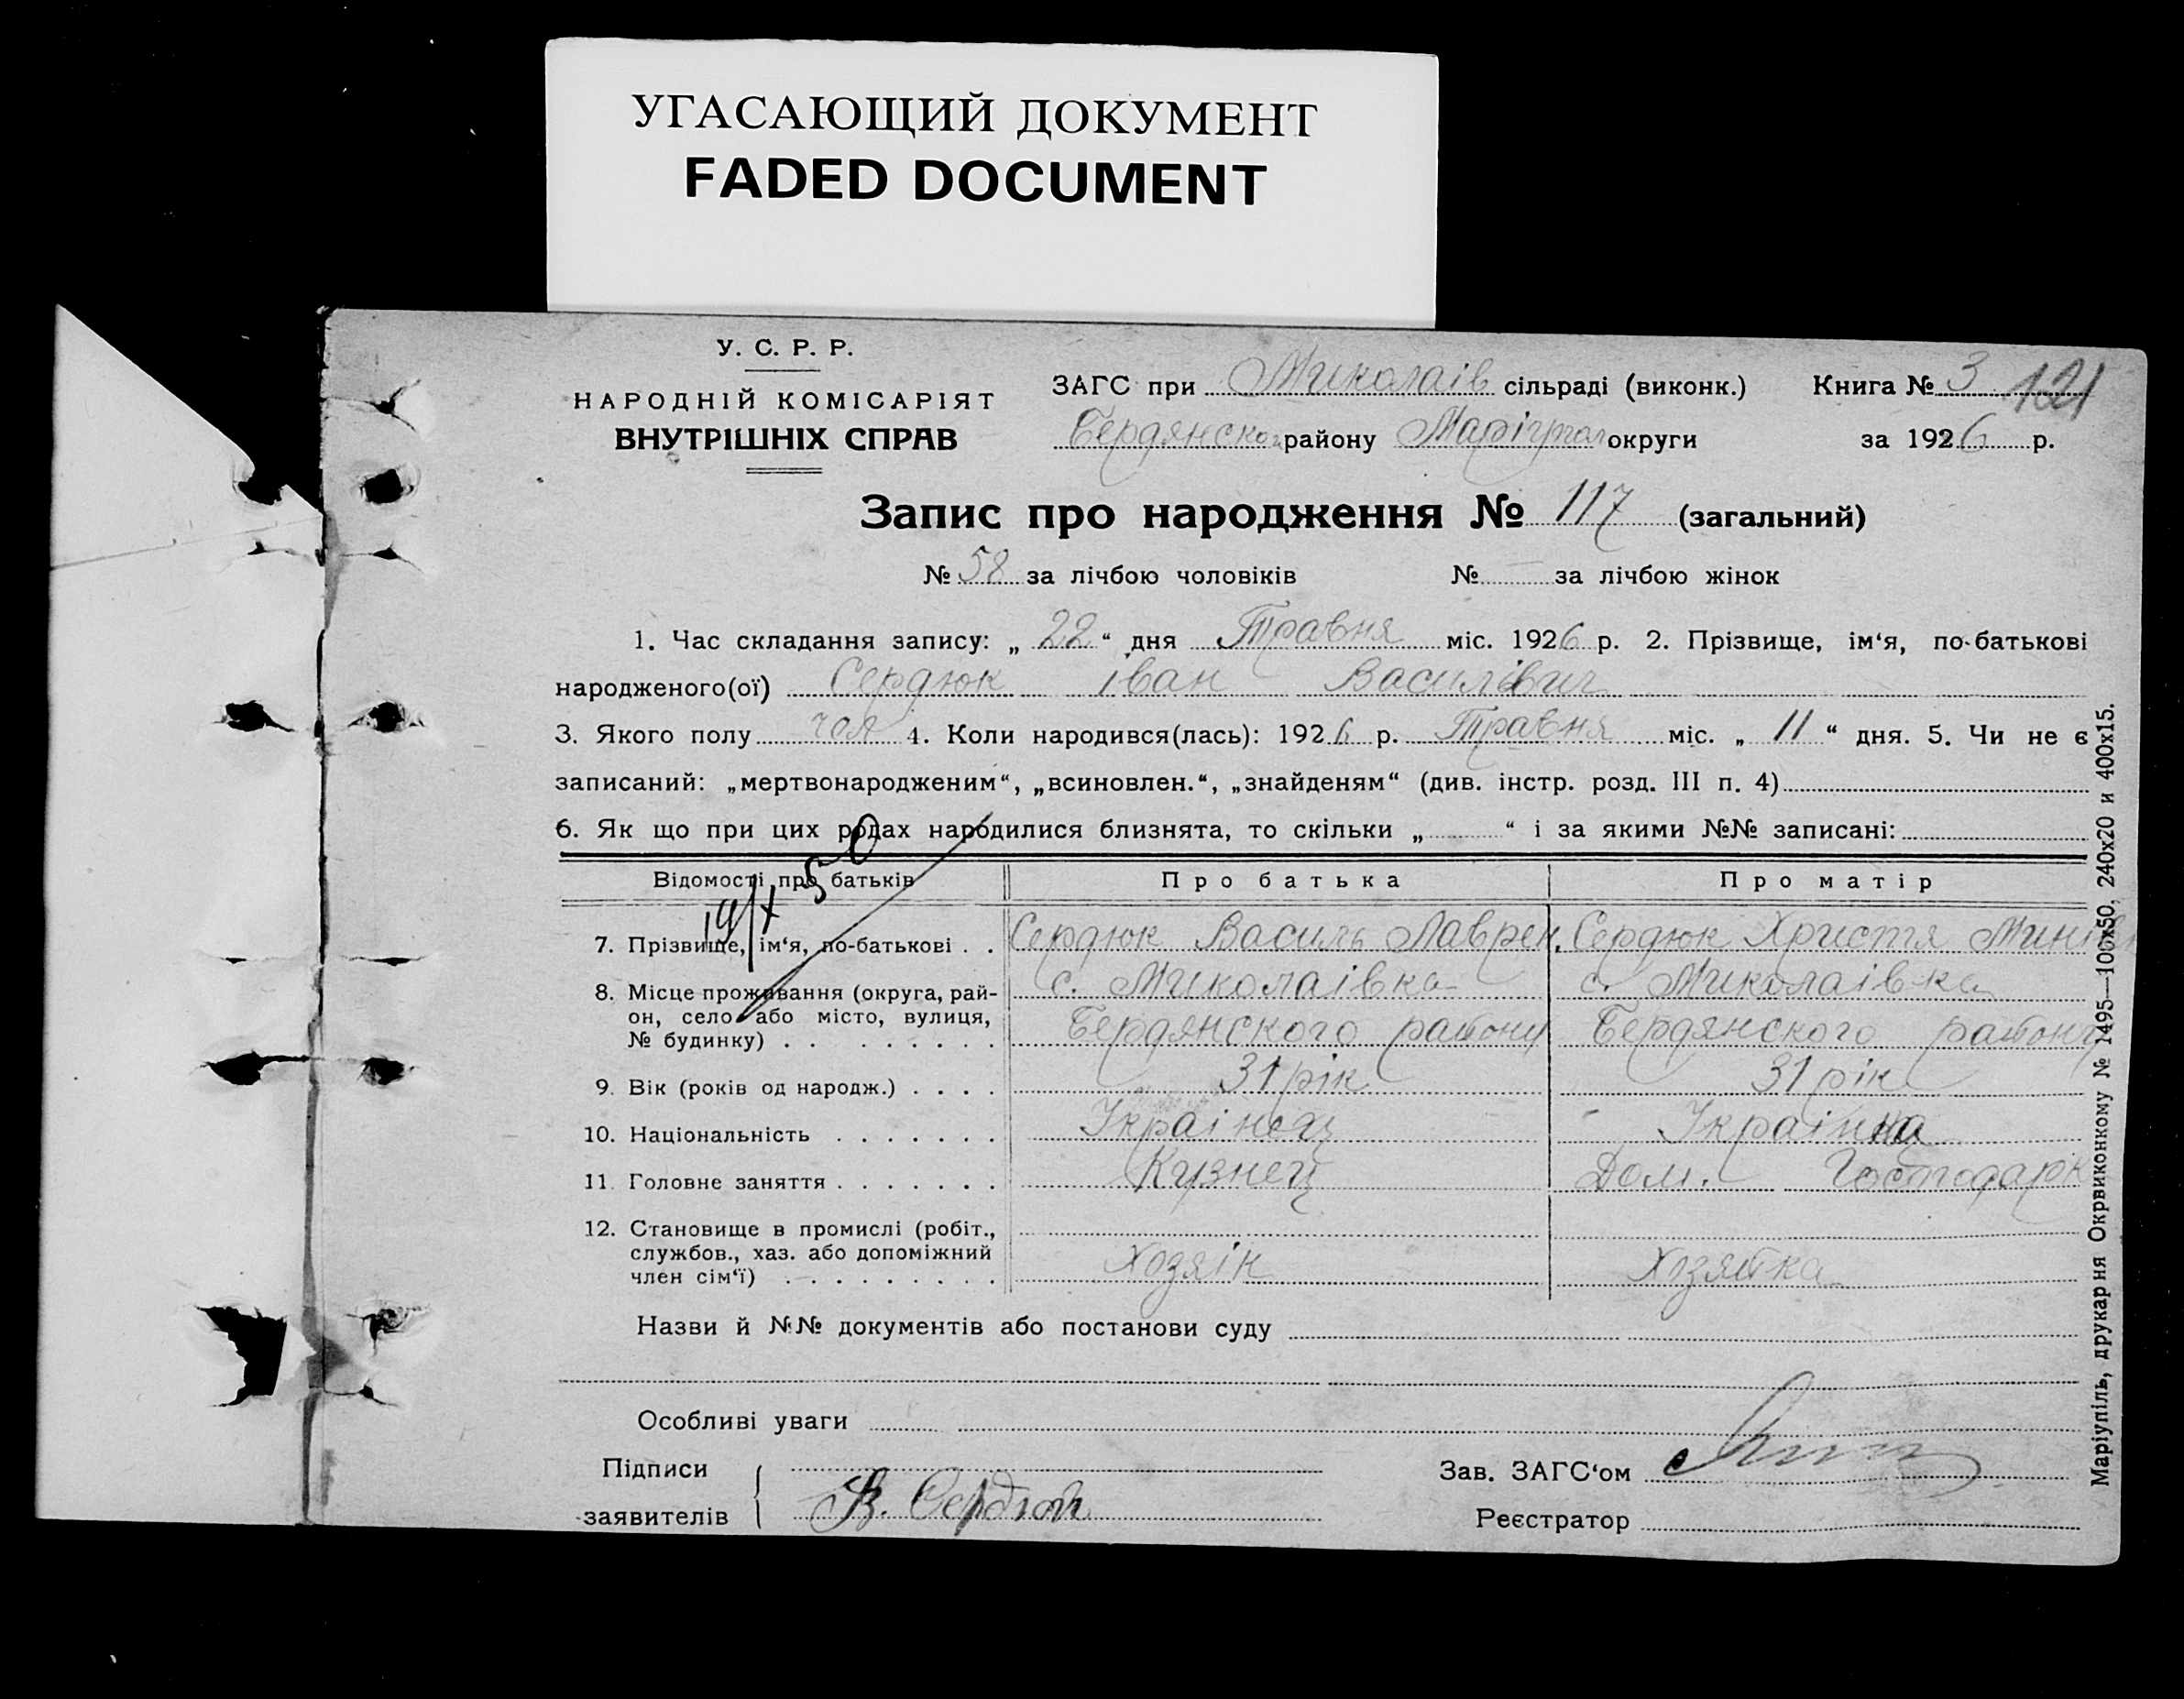 УГАСАЮЩИЙ ДОКУМЕНТ
FADED DOCUMENT
У. С. Р. Р.
НАРОДНІЙ КОМІСАРІЯТ
ВНУТРІШНІХ СПРАВ
ЗАГС при Миколаів сільраді (виконк.) Книга № 3 121
Бердянськ району Маріупол округи за 1926 р.
Запис про народження № 117 (загальний)
№ 58 за лічбою чоловіків № — за лічбою жінок
1. Час складання запису: „ 22 “ дня Травня міс. 1926 р. 2. Прізвище, ім‘я, по-батькові
народженого(ої) Сердюк іван Василівич
3. Якого полу чол 4. Коли народився(лась): 1926 р. Травня міс. „ 11 “ дня. 5. Чи не є
записаний: „мертвонародженим“, „всиновлен.“, „знайденям“ (див. інстр. розд. III п. 4)
6. Як що при цих родах народилися близнята, то скільки „ “ і за якими №№ записані:
Відомості про батьків Про батька Про матір
19/X 50
7. Прізвище, ім‘я, по-батькові . . Сердюк Василь Лаврен. Сердюк Христя
8. Місце проживання (округа, рай- с. Миколаівка с. Миколаівка
он, село або місто, вулиця, Бердянского району Бердянского району
№ будинку) . . . . . . . . .
9. Вік (років од народж.) . . . . 31 рік 31 рік
10. Національність . . . . . . . Украінец Украінка
11. Головне заняття . . . . . . . Кузнец Дом. Господарк
12. Становище в промислі (робіт.,
службов., хаз. або допоміжний Хозяін Хозяйка
член сім‘ї) . . . . . . . . .
Назви й №№ документів або постанови суду
Особливі уваги
Підписи Зав. ЗАГС‘ом
заявителів В. Сердюк Реєстратор
Маріупіль, друкарня Окрвиконкому № 1495—100х50, 240х20 и 400х15.